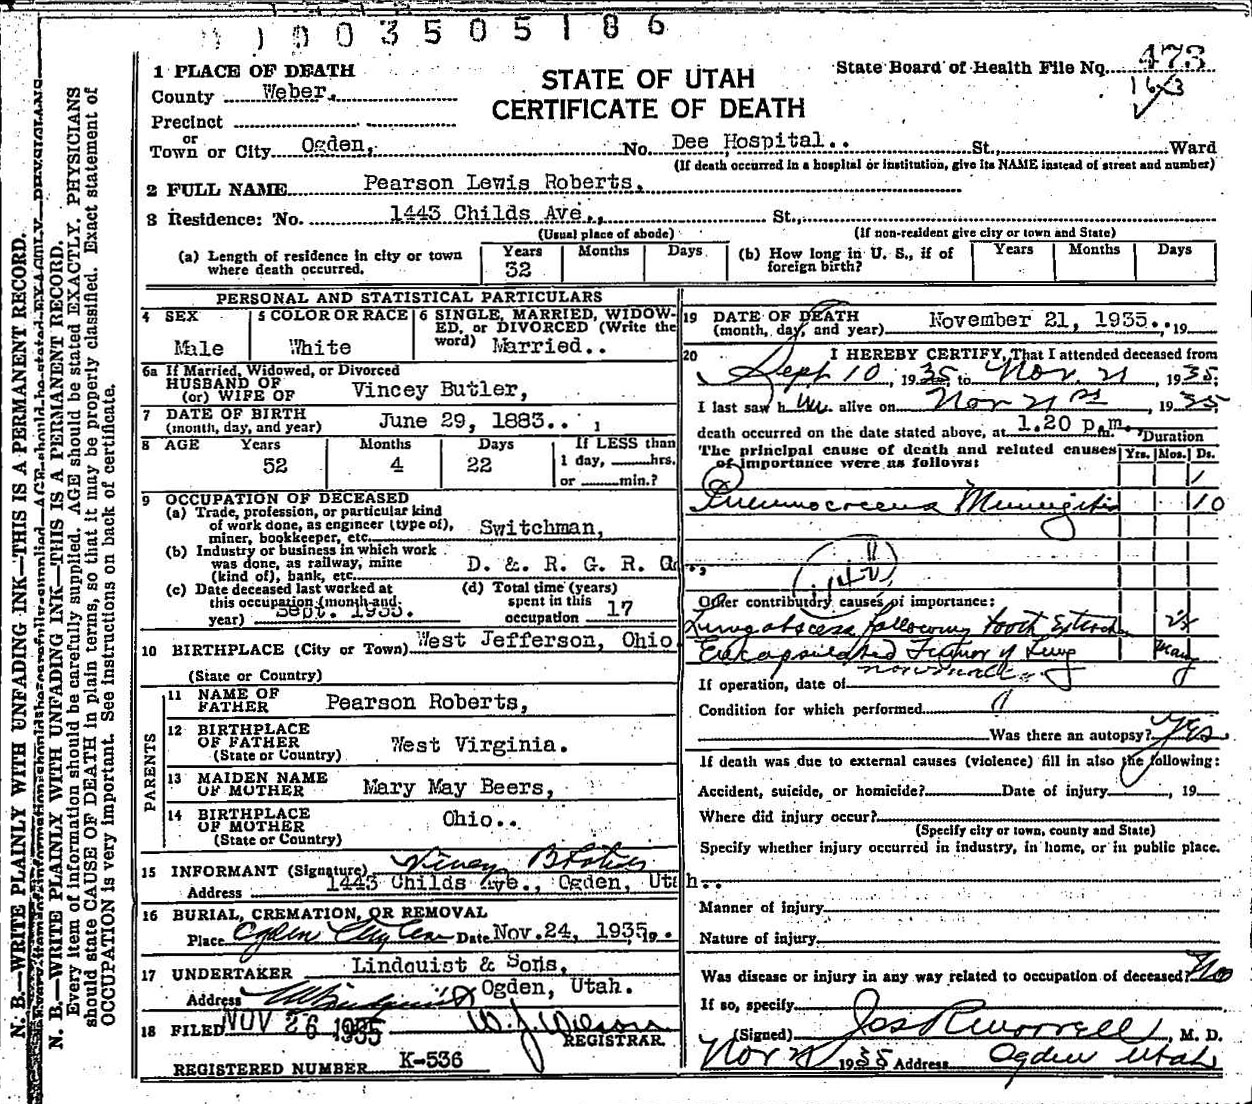 003505186
1 PLACE OF DEATH
STATE OF UTAH
CERTIFICATE OF DEATH
State Board of Health File No. 473
County Weber.
Precinct
or
Town or City Ogden, No. Dee Hospital.. St., Ward
(If death occurred in a hospital or institution, give its NAME instead of street and number)
2 FULL NAME Pearson Lewis Roberts,
3 Residence: No. 1443 Childs Ave., St.,
(Usual place of abode) (If non-resident give city or town and State)
(a) Length of residence in city or town where death occurred. Years 32 Months Days
(b) How long in U. S., if of foreign birth? Years Months Days
PERSONAL AND STATISTICAL PARTICULARS
4 SEX Male
5 COLOR OR RACE White
6 SINGLE, MARRIED, WIDOWED, or DIVORCED (Write the word) Married..
6a If Married, Widowed, or Divorced
HUSBAND OF
(or) WIFE OF Vincey Butler,
7 DATE OF BIRTH
(month, day, and year) June 29, 1883..
8 AGE Years 52 Months 4 Days 22 If LESS than 1 day, hrs. or min.?
9 OCCUPATION OF DECEASED
(a) Trade, profession, or particular kind of work done, as engineer (type of), miner, bookkeeper, etc. Switchman,
(b) Industry or business in which work was done, as railway, mine (kind of), bank, etc. D. &. R. G. R. G..,
(c) Date deceased last worked at this occupation (month and year) Sept. 1935.
(d) Total time (years) spent in this occupation 17
10 BIRTHPLACE (City or Town) West Jefferson, Ohio
(State or Country)
PARENTS
11 NAME OF FATHER Pearson Roberts,
12 BIRTHPLACE OF FATHER (State or Country) West Virginia.
13 MAIDEN NAME OF MOTHER Mary May Beers,
14 BIRTHPLACE OF MOTHER (State or Country) Ohio..
15 INFORMANT (Signature) Vincey B Roberts
Address 1443 Childs Ave., Ogden, Utah..
16 BURIAL, CREMATION, OR REMOVAL
Place Ogden City Cem Date Nov. 24, 1935, 19 .
17 UNDERTAKER Lindquist & Sons,
Address Ogden, Utah.
18 FILED NOV 26 1935 W. J. Wilson
REGISTRAR.
REGISTERED NUMBER K-536
19 DATE OF DEATH
(month, day, and year) November 21, 1935.., 19
20 I HEREBY CERTIFY, That I attended deceased from
Sept 10, 1935 to Nov. 21, 1935;
I last saw him alive on Nov 21st, 1935
death occurred on the date stated above, at 1.20 p.m.
The principal cause of death and related causes of importance were as follows: Duration Yrs. Mos. Ds.
Pneumococcus Meningitis 10
Other contributory causes of importance:
Lung abscess following tooth Extract
Encapsulated Tumor of Lung Many
If operation, date of
Condition for which performed
Was there an autopsy? Yes.
If death was due to external causes (violence) fill in also the following:
Accident, suicide, or homicide? Date of injury , 19
Where did injury occur?
(Specify city or town, county and State)
Specify whether injury occurred in industry, in home, or in public place.
Manner of injury
Nature of injury
Was disease or injury in any way related to occupation of deceased? No
If so, specify
(Signed) Jos R Morrell, M. D.
Nov 21 1935 Address Ogden Utah
N. B.—WRITE PLAINLY WITH UNFADING INK—THIS IS A PERMANENT RECORD.
N. B.—WRITE PLAINLY WITH UNFADING INK—THIS IS A PERMANENT RECORD.
Every item of information should be carefully supplied. AGE should be stated EXACTLY. PHYSICIANS
should state CAUSE OF DEATH in plain terms, so that it may be properly classified. Exact statement of
OCCUPATION is very important. See instructions on back of certificate.